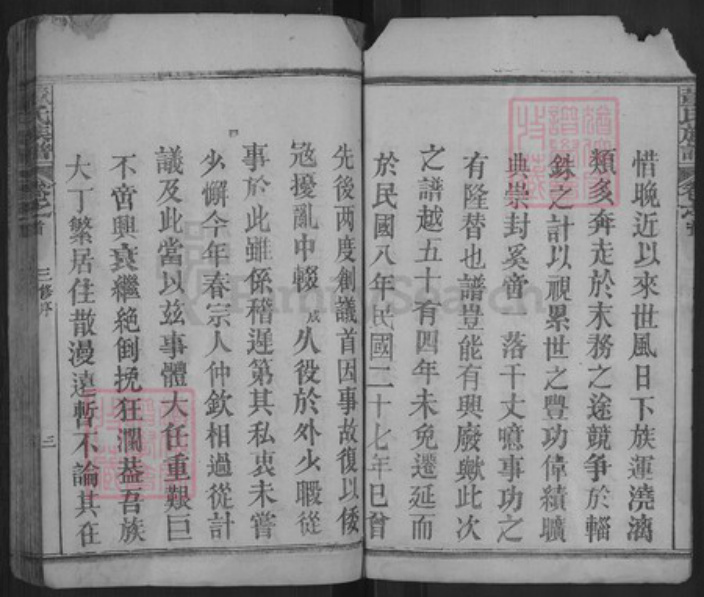 惜晚近以來世風日下族運澆漓
類多奔走於末務之途競爭於輜
銖之計以視累世之豐功偉績曠
典崇封奚啻落干丈噫事功之
有隆替也譜豈能有興廢歟此次
之譜越五十有四年未免遷延而
於民國八年民國二十七年已曾
先後两度創議首因事故復以倭
寇擾亂中輟 久役於外少暇從
事於此雖係稽遲第其私衷未嘗
少懈今年春宗人仲欽相過從計
議及此當以兹事體大任重艱巨
不啻興衰繼絶倒挽狂瀾葢吾族
大丁繁居住散漫遠暫不論其在
氏族譜
卷之首
三修序
三
FamilySearch